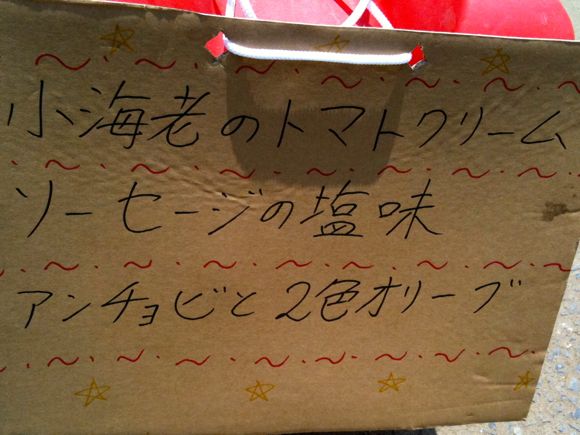 小海老のトマトクリーム
ソーセージの塩味
アンチョビと2色オリーブ